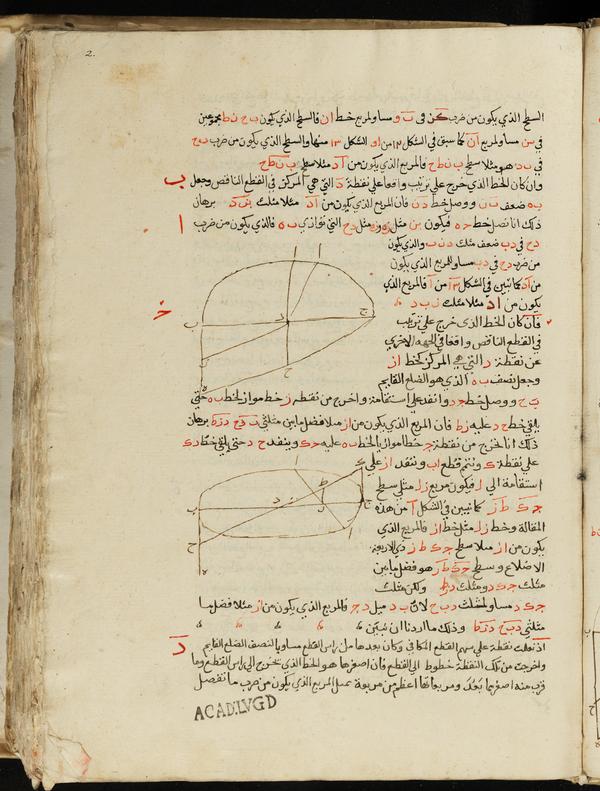 2.
السطح الذي يكون من ضرب كن في ن و مساو لمربع خط ان فالسطح الذي يكون ب ح نط مجموعين
في س مساو لمربع ان كما سبق في الشكل ١٢ من او الشكل ١٣ منها والسطح الذي يكون من ضرب دح
في ب د هو مثلا سطح ب ن طح فالمربع الذي يكون من آد مثلا سطح ب ن طح
وان كان الخط الذي خرج على ترتيب واقعا على نقطة د التي هي المركز في القطع الناقص وجعل ب
ب ه ضعف ووصل خط فان المربع الذي يكون من اد مثلا مثلث ب ز د برهان
ذلك انا نصل خط ح ه فيكون مثل ومثل دح التي توازي ب ه فالذي يكون من ضرب ا
دح في دب ضعف مثلث والذي يكون
من ضرب دح في دب مساو للمربع الذي يكون
من اد كما تبين في الشكل من آ فالمربع الذي
يكون من اد مثلا مثلث ز ب د
فان كان الخط الذي خرج على ترتيب
في القطع الناقص واقعا في الجهة الاخرى
عن نقطة د التي هي المركز كخط از
وجعل نصف ب ه الذي هو الضلع القايم
ب ح ووصل خط ح د وانفذ على استقامة واخرج من نقطة ز خط مواز لخط ب ه حتى
يلقى خط ح د عليه زط فان المربع الذي يكون من از مثلا فضل ما بين مثلثي دبح دزط برهان
ذلك انا نخرج من نقطة ج خطا موازيا لخط ب ه عليه ج ك وينفد ح د حتى يلقى خط ك
على نقطة ك ونتمم قطع اب وننفذ از على
استقامة الى ل فيكون مربع ز ل مثلي سطح
ج ك ط ز كما تبين في الشكل آ من هذه
المقالة وخط ز ل مثل خط از فالمربع الذي
يكون من از مثلا سطح ج ك ط ز ذي الاربعة
الاضلاع وسطح ج ك ط ز هو فضل ما بين
مثلث ج ك د ومثلث دزط ولكن مثلث
ج ك د مساو لمثلث دبح لان ب د مثل دج فالمربع الذي يكون من از مثلا فضل ما بين
مثلثي دبح دزط وذلك ما اردنا ان نبين
د
اذا تعلمت نقطة على سهم القطع المكافي وكان بعدها من راس القطع مساويا لنصف الضلع القايم
واخرجت من تلك النقطة خطوط الى القطع فان اصغرها هو الخط الذي يخرج الى راس القطع وما
قرب منه اصغر مما بعد ومربعاتها اعظم من مربعه بمثل المربع الذي يكون من ضرب ما تفصل
ACAD. LVGD